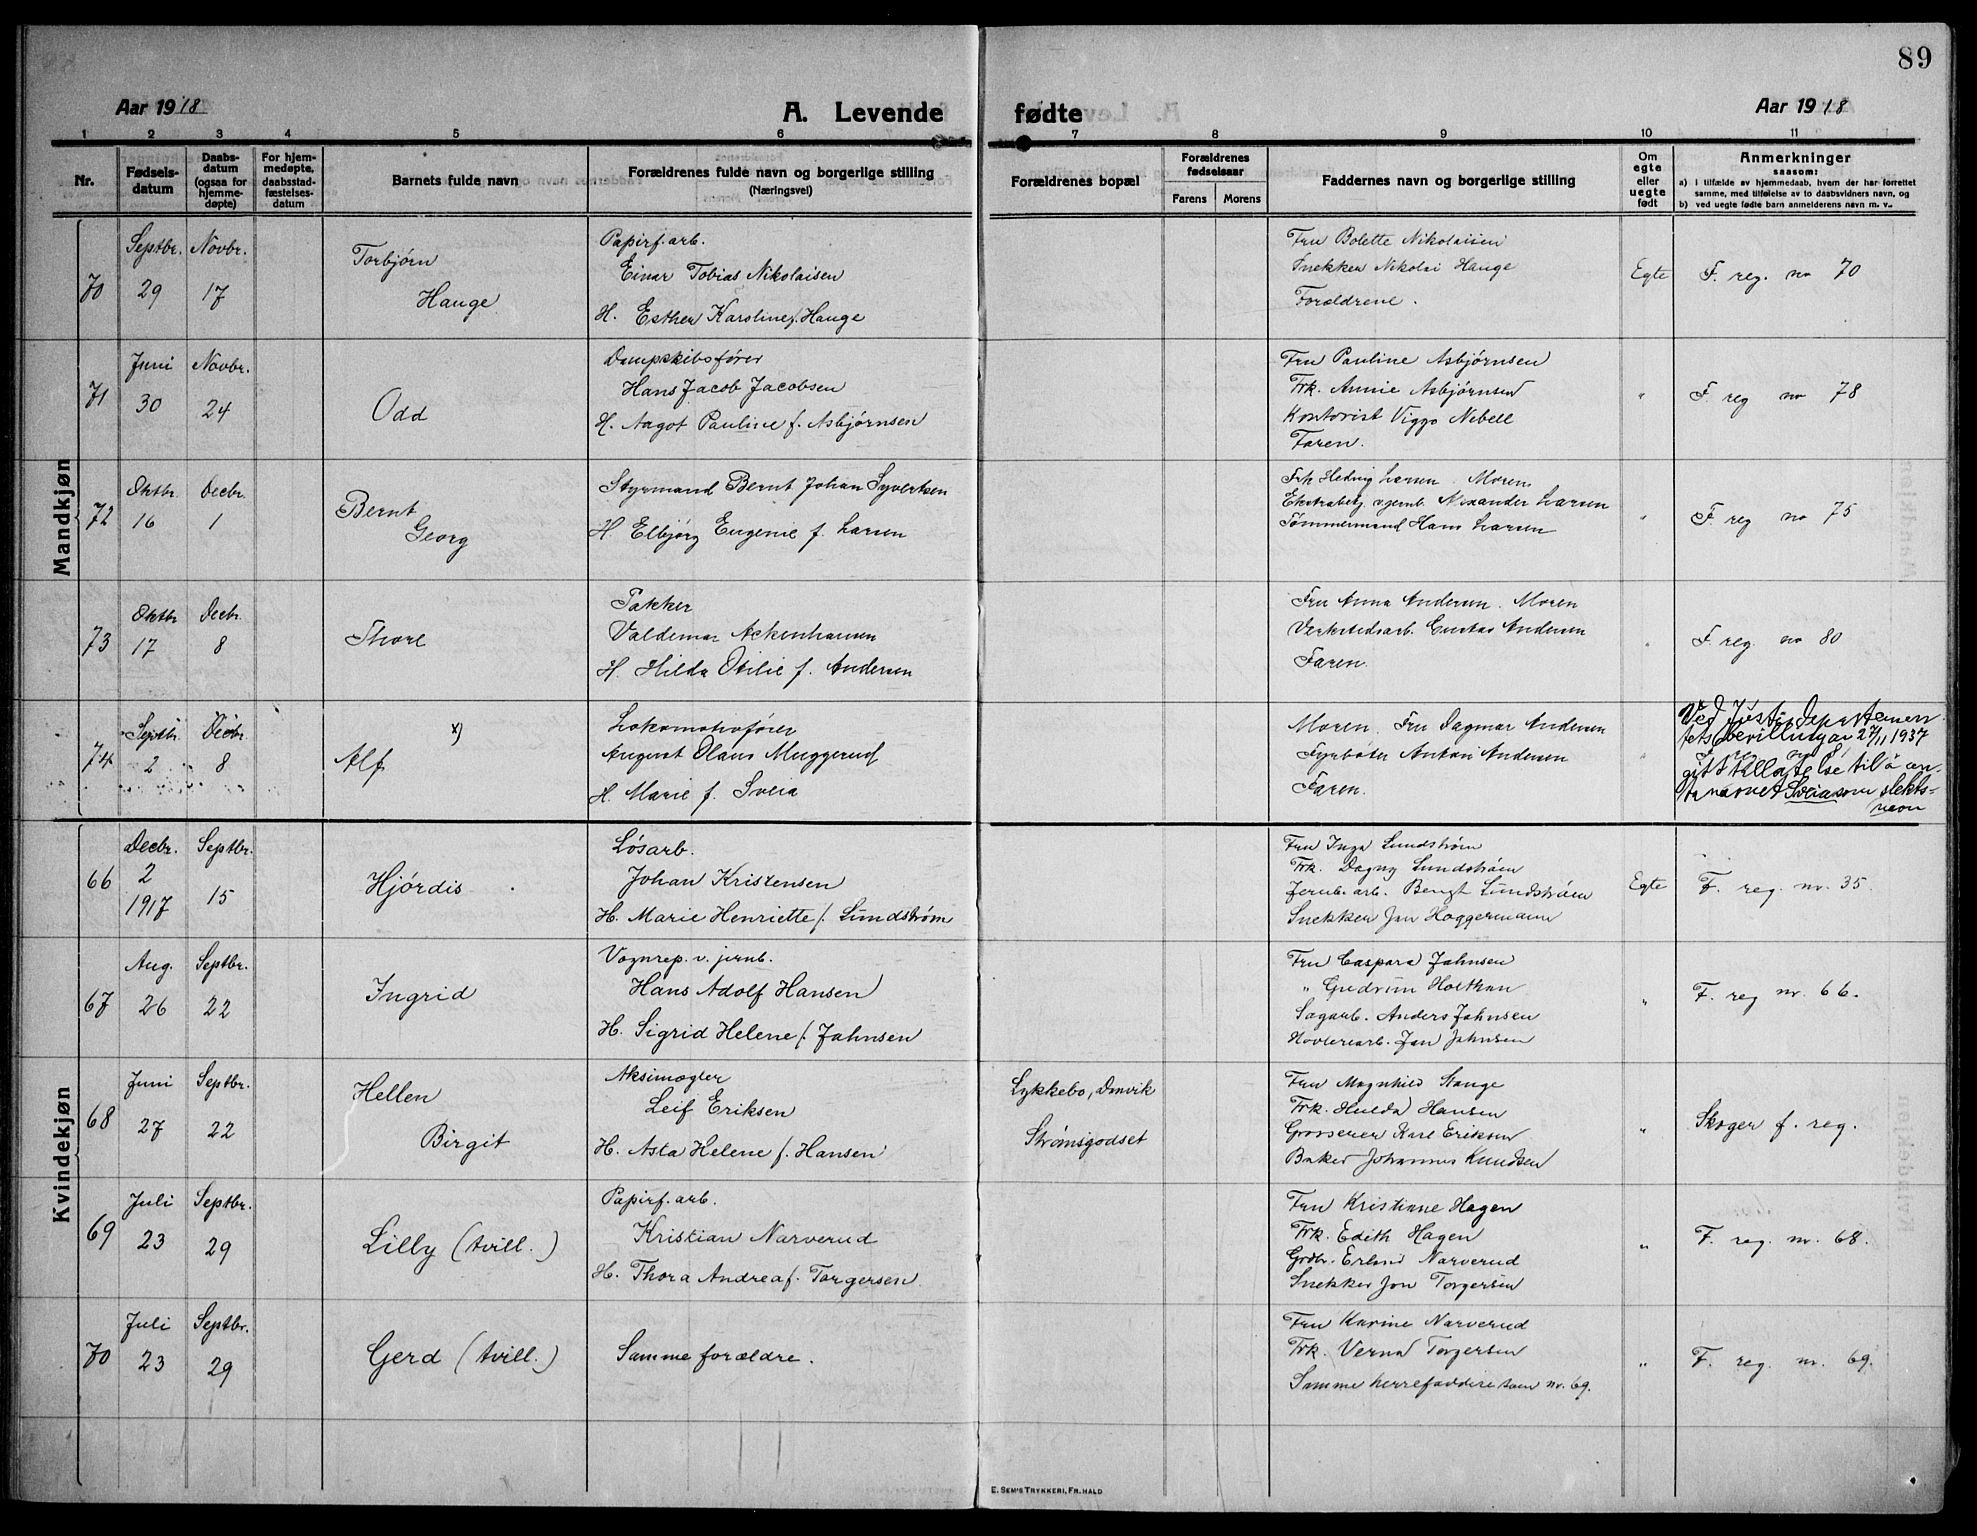 89
Aar 1918
A. Levende
fødte
Aar 1918
1 2 3 4 5 6 7 8 9 10 11
Nr.
Fødsels-
datum
Daabs-
datum
(ogsaa for
hjemme-
døpte)
For hjem-
medøpte,
daabsstad-
fæstelses-
datum
Barnets fulde navn
Forældrenes fulde navn og borgerlige stilling
(Næringsvei)
Forældrenes bopæl
Forældrenes
fødselsaar
Farens
Morens
Faddernes navn og borgerlige stilling
Om
egte
eller
uegte
født
Anmerkninger
saasom:
a) i tilfælde av hjemmedaab, hvem der har forrettet
samme, med tilføielse av to daabsvidners navn, og
b) ved uegte fødte barn anmelderens navn m. v.
Mandkjøn
70
Septbr.
29
Novbr.
17
Torbjørn
Hauge
Papirf. arb.
Einar Tobias Nikolaisen
H. Esther Karoline f. Hauge
Fru Bolette Nikolaisen
Snekker Nikolai Hauge
Forældrene.
Egte
F. reg. no 70
71
Juni
30
Novbr.
24
Odd
Dampskibsfører
Hans Jacob Jacobsen
H. Aagot Pauline f. Asbjørnsen
Fru Pauline Asbjørnsen
Frk. Annie Asbjørnsen
Kontorist Viggo Nebell
Faren.
"
F. reg no 78
72
Oktbr.
16
Decbr.
1
Bernt
Georg
Styrmand Bernt Johan Syvertsen
H Elbjørg Eugenie f. Larsen
Frk Hedvig Larsen. Moren
Ekstrabetj. v. jernb. Alexander Larsen
Tømmermand Hans Larsen
"
F. reg no 75
73
Oktbr
17
Decbr.
8
Thore
Pakker
Valdemar Ackenhausen
H. Hilda Otilie f. Andersen
Fru Anna Andersen. Moren
Verkstedsarb. Gustav Andersen
Faren.
"
F. reg. no 80
74
Septbr.
2
Decbr
8
x)
Alf
Lokomotivfører
August Olaus Muggerud
H. Marie f. Sveia
Moren. Fru Dagmar Andersen
Fyrbøter Anton Andersen
Faren.
"
Ved Justisdepartemen-
tets bevilling av 27/11 1937
gitt tillatelse til å an-
ta navnet Sveia som slekts-
navn
Kvindekjøn
66
Decbr.
2
1917
Septbr.
15
Hjórdis
Løsarb.
Johan Kristensen
H. Marie Henriette f. Lundstrøm
Fru Inga Lundstrøm
Frk. Dagny Lundstrøm
Jernb. arb. Bengt Lundstrøm
Snekker Jan Haggermann
Egte
F. reg. nr. 35.
67
Aug.
26
Septbr.
22
Ingrid
Vognrep. v. jernb.
Hans Adolf Hansen
H. Sigrid Helene f. Jahnsen
Fru Caspara Jahnsen
" Gudrun Holtkan
Sagarb. Anders Jahnsen
Høvleriarb. Jan Jahnsen
"
F. reg nr. 66.
68
Juni
27
Septbr.
22
Hellen
Birgit
Aksimægler
Leif Eriksen
H. Asta Helene f. Hansen
Lykkebo, Danvik
Strømsgodset
Fru Magnhild Stange
Frk. Hulda Hansen
Grosserer Karl Eriksen
Baker Johannes Knudsen
"
Skoger f. reg.
69
Juli
23
Septbr.
29
Lilly (tvill.)
Papirf. arb.
Kristian Narverud
H. Thora Andrea f. Torgersen
Fru Kristiane Hagen
Frk. Edith Hagen
Grdbr. Erland Narverud
Snekker Jon Torgersen
"
F. reg. nr. 68.
70
Juli
23
Septbr.
29
Gerd (tvill.)
Samme forældre.
Fru Karine Narverud
Frk. Verna Torgersen
Samme herrefaddere som nr. 69.
"
F. reg. nr. 69.
E. SEM'S TRYKKERI, FR.HALD